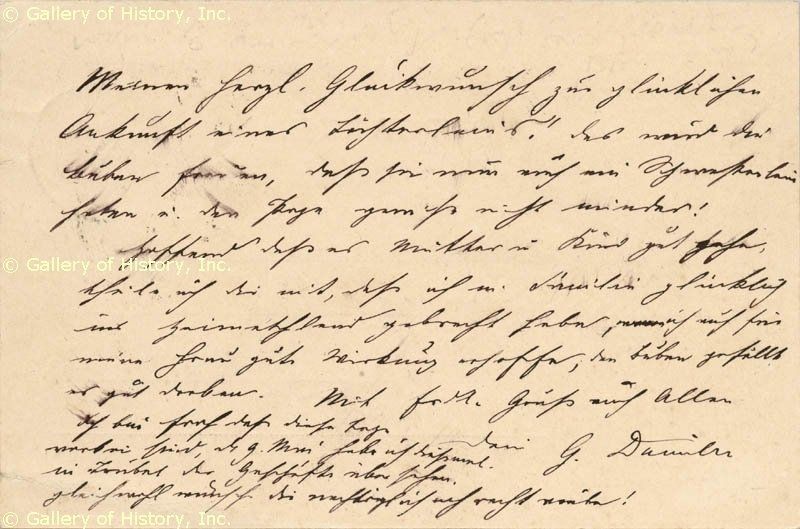 © Gallery of History, Inc.
Meinen herzl. Glückwunsch zur glücklichen
Ankunft eines Töchterleins! das wird die
Buben freuen, daß sie nun auch ein Schwesterlein
haben u. den Papa gewiß nicht minder!
Hoffend daß es Mutter u Kind gut gehe,
© Gallery of History, Inc.
theile ich dir mit, daß ich m. Familie glücklich
ins Heimathland gebracht habe, ich auch für
meine Frau gute Wirkung erhoffe, den Buben gefällt
es gut droben. Mit Gruß auch Allen
Ich bin froh daß diese Tage
vorbei sind, d 9. Mai habe ich diesmal dein G. Daimler
im Trubel der Geschäfte übersehen.
gleichwohl wünsche dir nachträglich noch recht viele!
© Gallery of History, Inc.